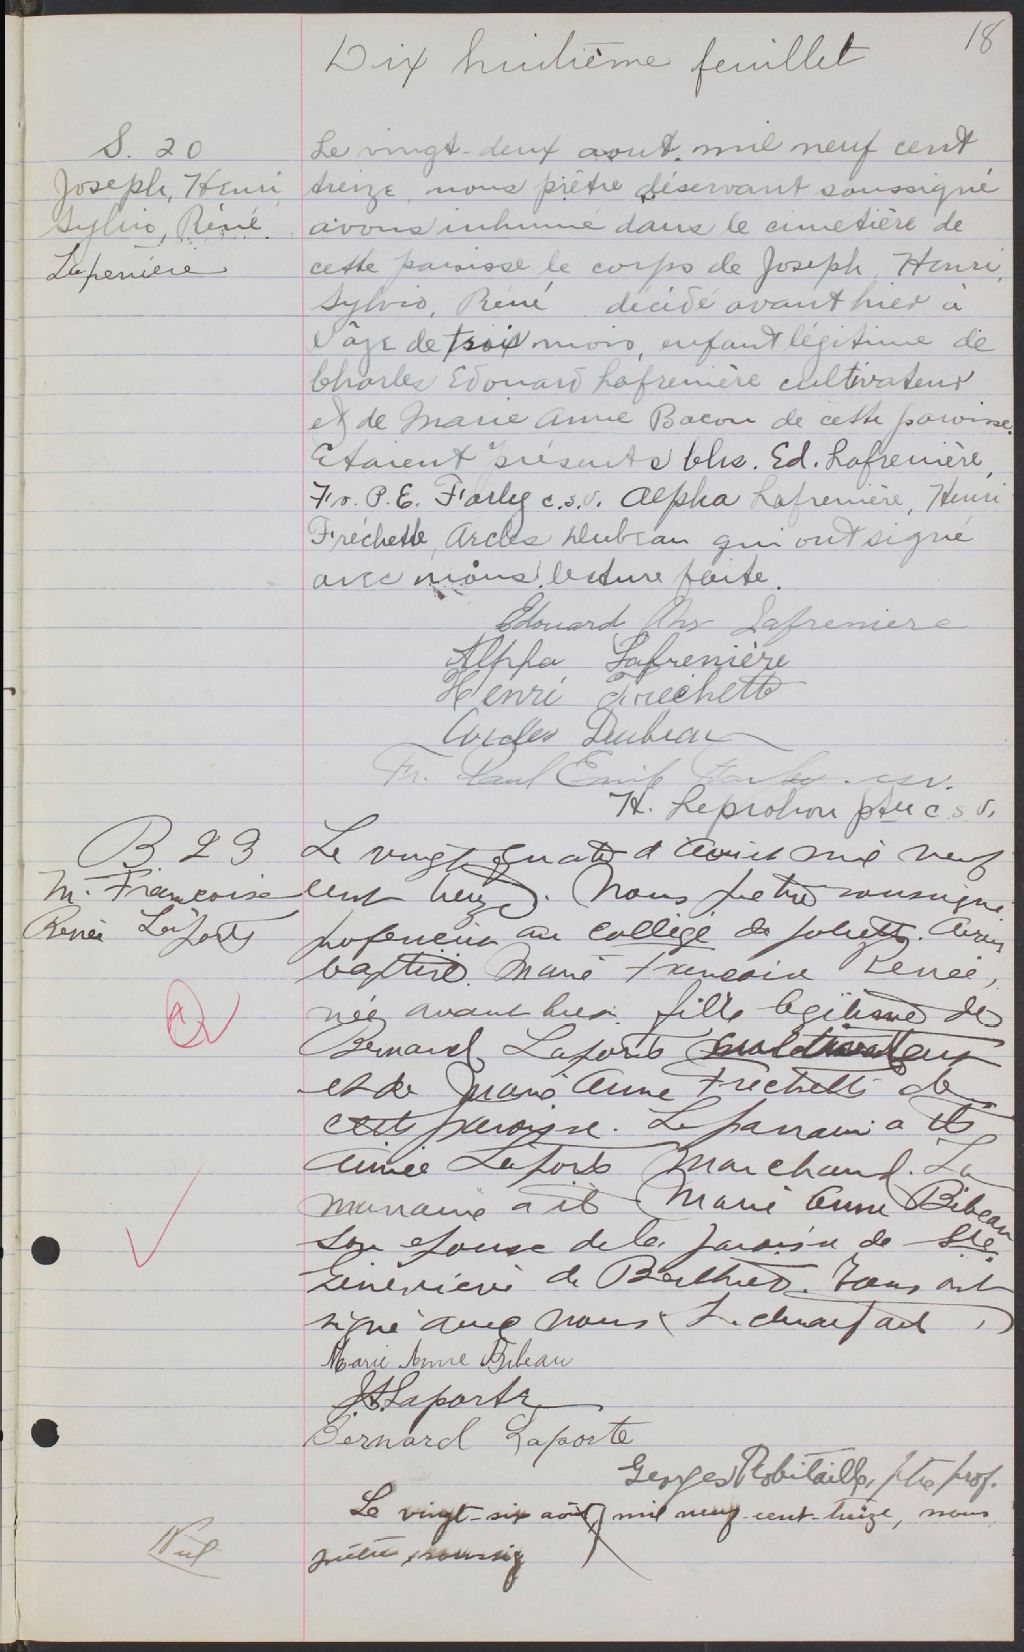 18
Dix huitième feuillet
S. 20
Joseph, Henri,
Sylvio, Réné
Lafrenière
Le vingt-deux aout mil neuf cent
treize, nous prêtre déservant soussigné
avons inhumé dans le cimetière de
cette paroisse le corps de Joseph, Henri,
Sylvio, Réné décidé avant hier à
l'âge de trois mois, enfant légitime de
Charles Edouard Lafrenière cultivateur
et de Marie Anne Bacon de cette paroisse.
Etaient présents Chs. Ed. Lafrenière,
Fr. P. E. Farley c.s.v. Alpha Lafrenière, Henri
Fréchette, Arcles Dubeau qui ont signé
avec nous lecture faite.
Edouard Chs Lafreniere
Alpha Lafrenière
Henri Frechette
Dubeau
Fr. Paul Emile Farley. csv.
H. Leprohon ptre c.s.v.
B 23
M. Francoise
Renée Laporte
Le vingt quatre d'aout mil neuf
cent treize. Nous pretre soussigné
professeur au collège de Joliette. Avons
baptisé Marie Francoise Renée,
née avant hier fille légitime de
Bernard Laporte cultivateur
et de Marie Anne Frechette de
cette paroisse. Le parrain a été
Aimée Laporte Marchand. La
marraine a été Marie Anne Bibeau
son epouse de la paroisse de Ste
Geneviève de Berthier. Tous ont
signé avec nous
Marie Anne Bibeau
J.A. Laporte
Bernard Laporte
Georges Robitaille, ptre prof.
Nul
Le vingt-six août mil neuf-cent-treize, nous,
prêtre soussig